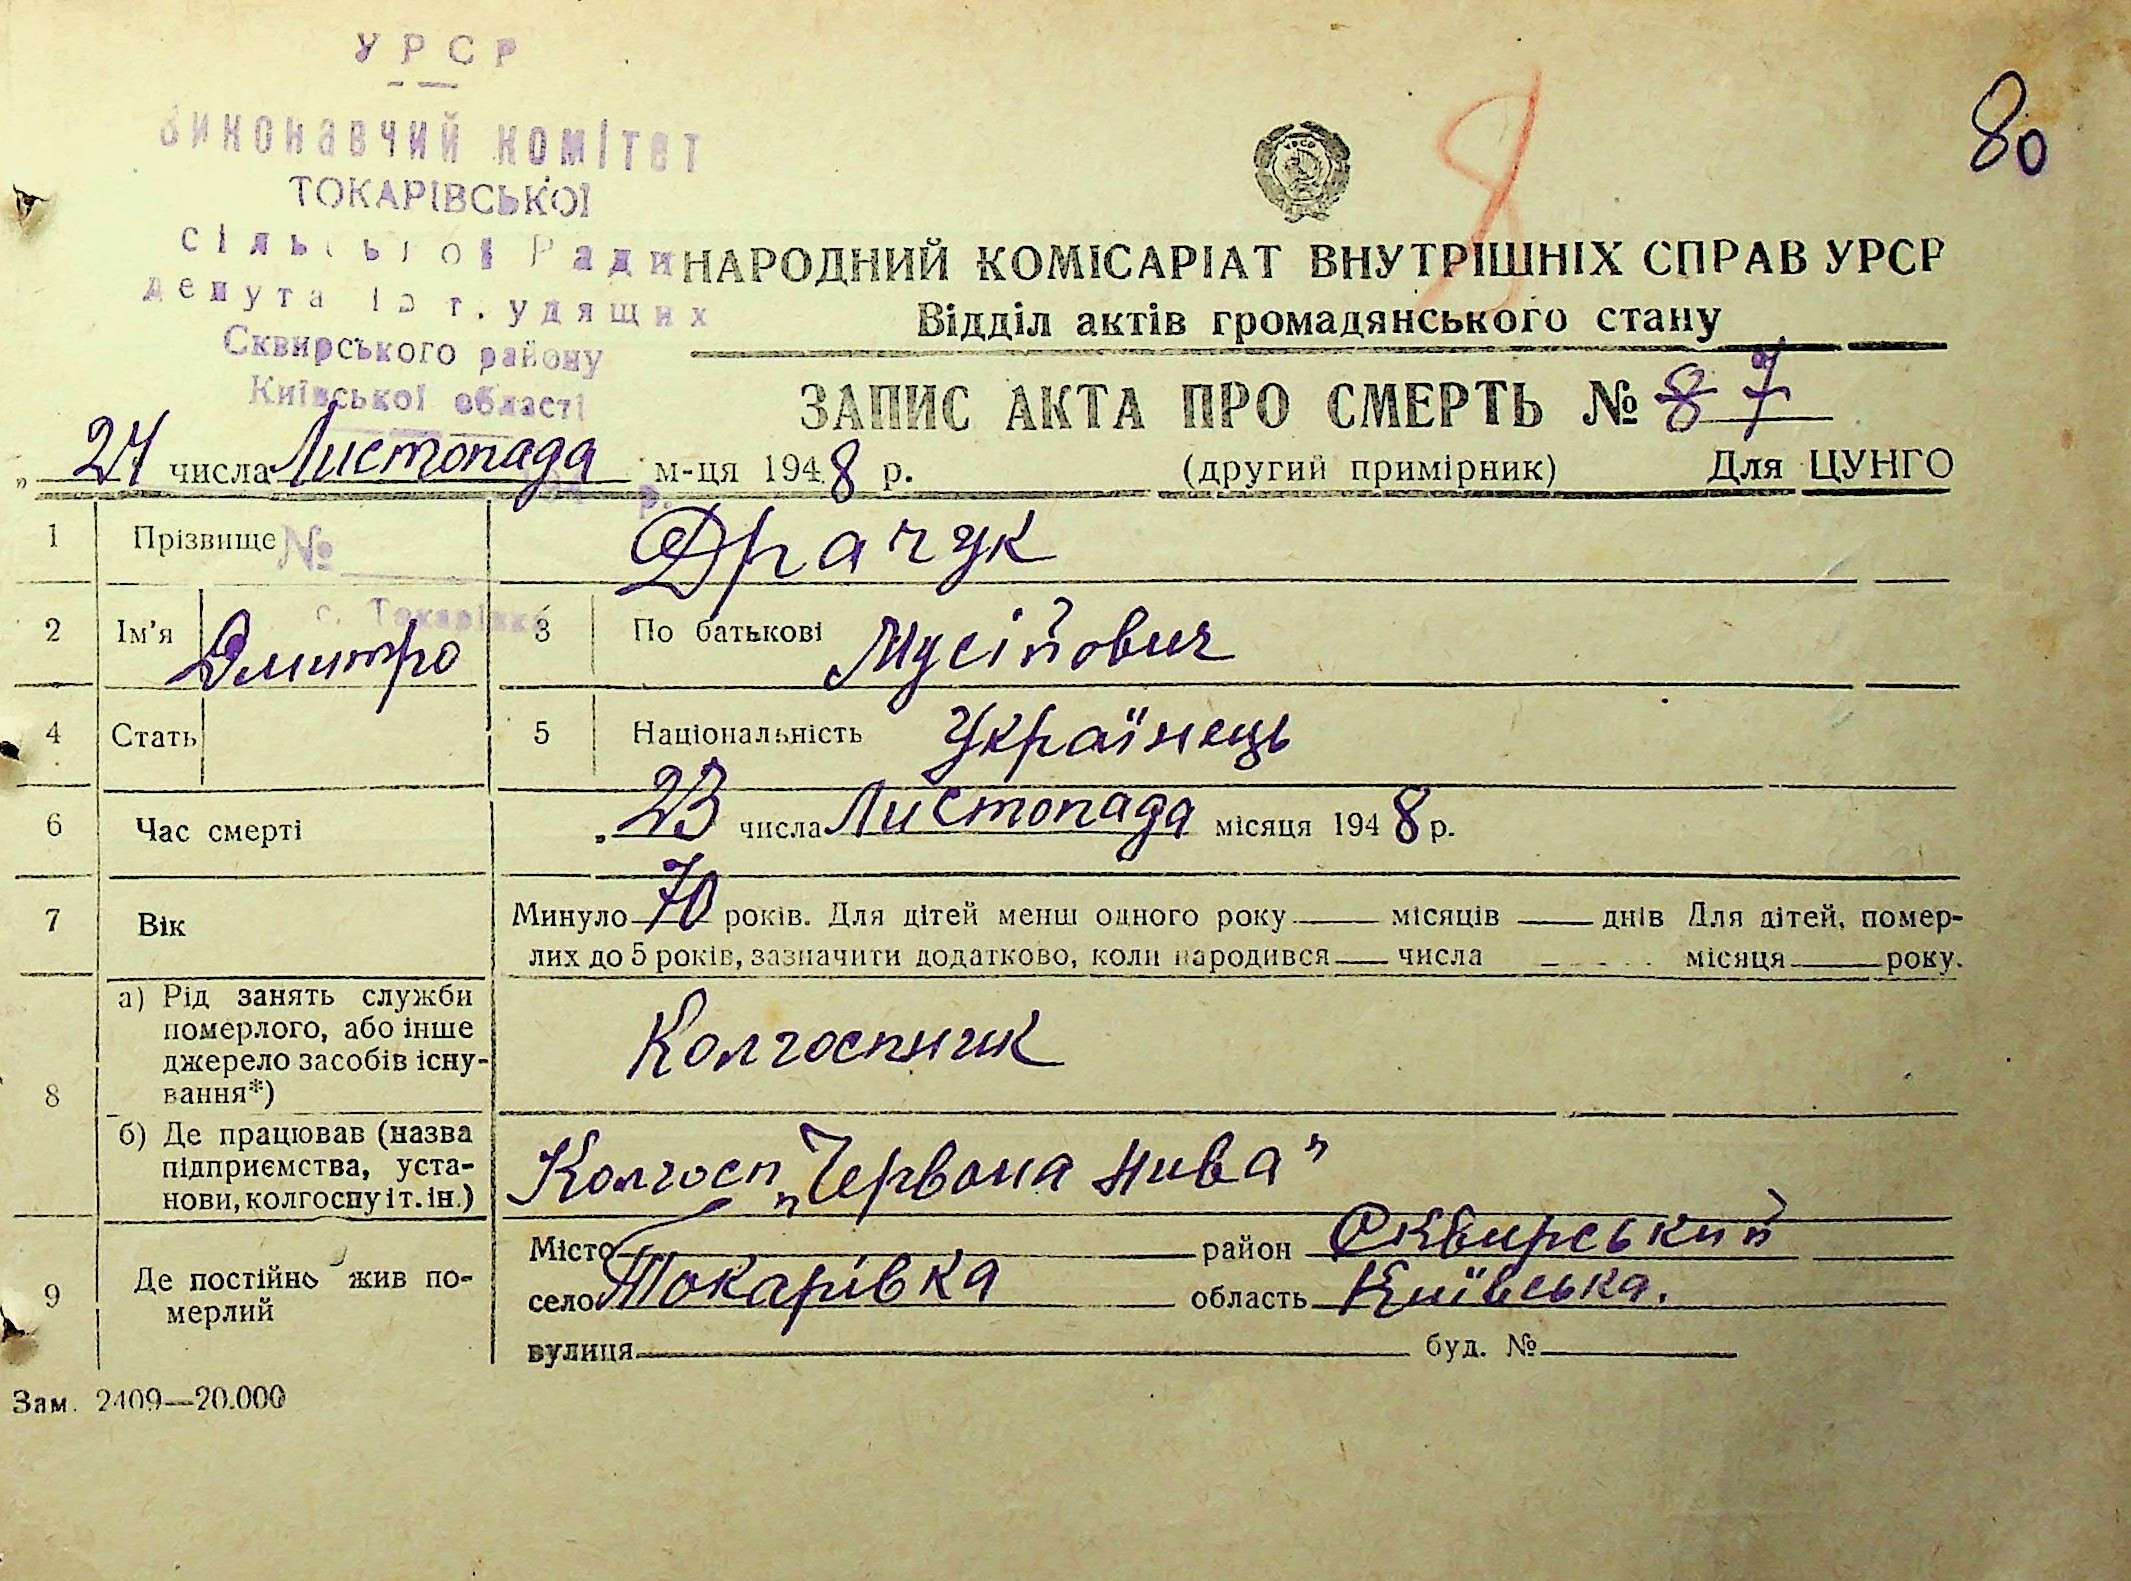 УРСР
Виконавчий комітет
ТОКАРІВСЬКОЇ
сільської Ради
депутатів трудящих
Сквирського району
Київської області
80
8
УРСР
НАРОДНИЙ КОМІСАРІАТ ВНУТРІШНІХ СПРАВ УРСР
Відділ актів громадянського стану
ЗАПИС АКТА ПРО СМЕРТЬ № 8 7
„ 24 числа Листопада м-ця 1948 р. (другий примірник) Для ЦУНГО
р.
1 Прізвище Драчук
№
с. Токарівка
2 Ім'я Дмитро 3 По батькові Мусійович
4 Стать 5 Національність Українець
6 Час смерті „ 23 числа Листопада місяця 1948 р.
7 Вік Минуло 70 років. Для дітей менш одного року місяців днів Для дітей, помер-
лих до 5 років, зазначити додатково, коли народився числа місяця року.
8 а) Рід занять служби
померлого, або інше
джерело засобів існу-
вання*)
Колгоспник
б) Де працював (назва
підприємства, уста-
нови, колгоспу і т. ін.)
Колгосп „Червона нива"
9 Де постійно жив по-
мерлий
Місто район Сквирський
село Токарівка область Київська.
вулиця буд. №
Зам. 2409—20.000